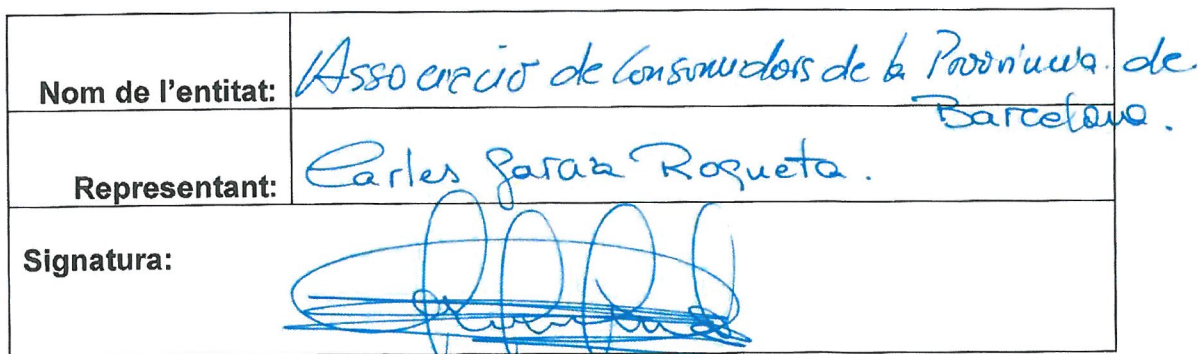 Nom de l'entitat: Associació de Consumidors de la Província de
Barcelona.
Representant: Carles Garcia Roqueta.
Signatura: